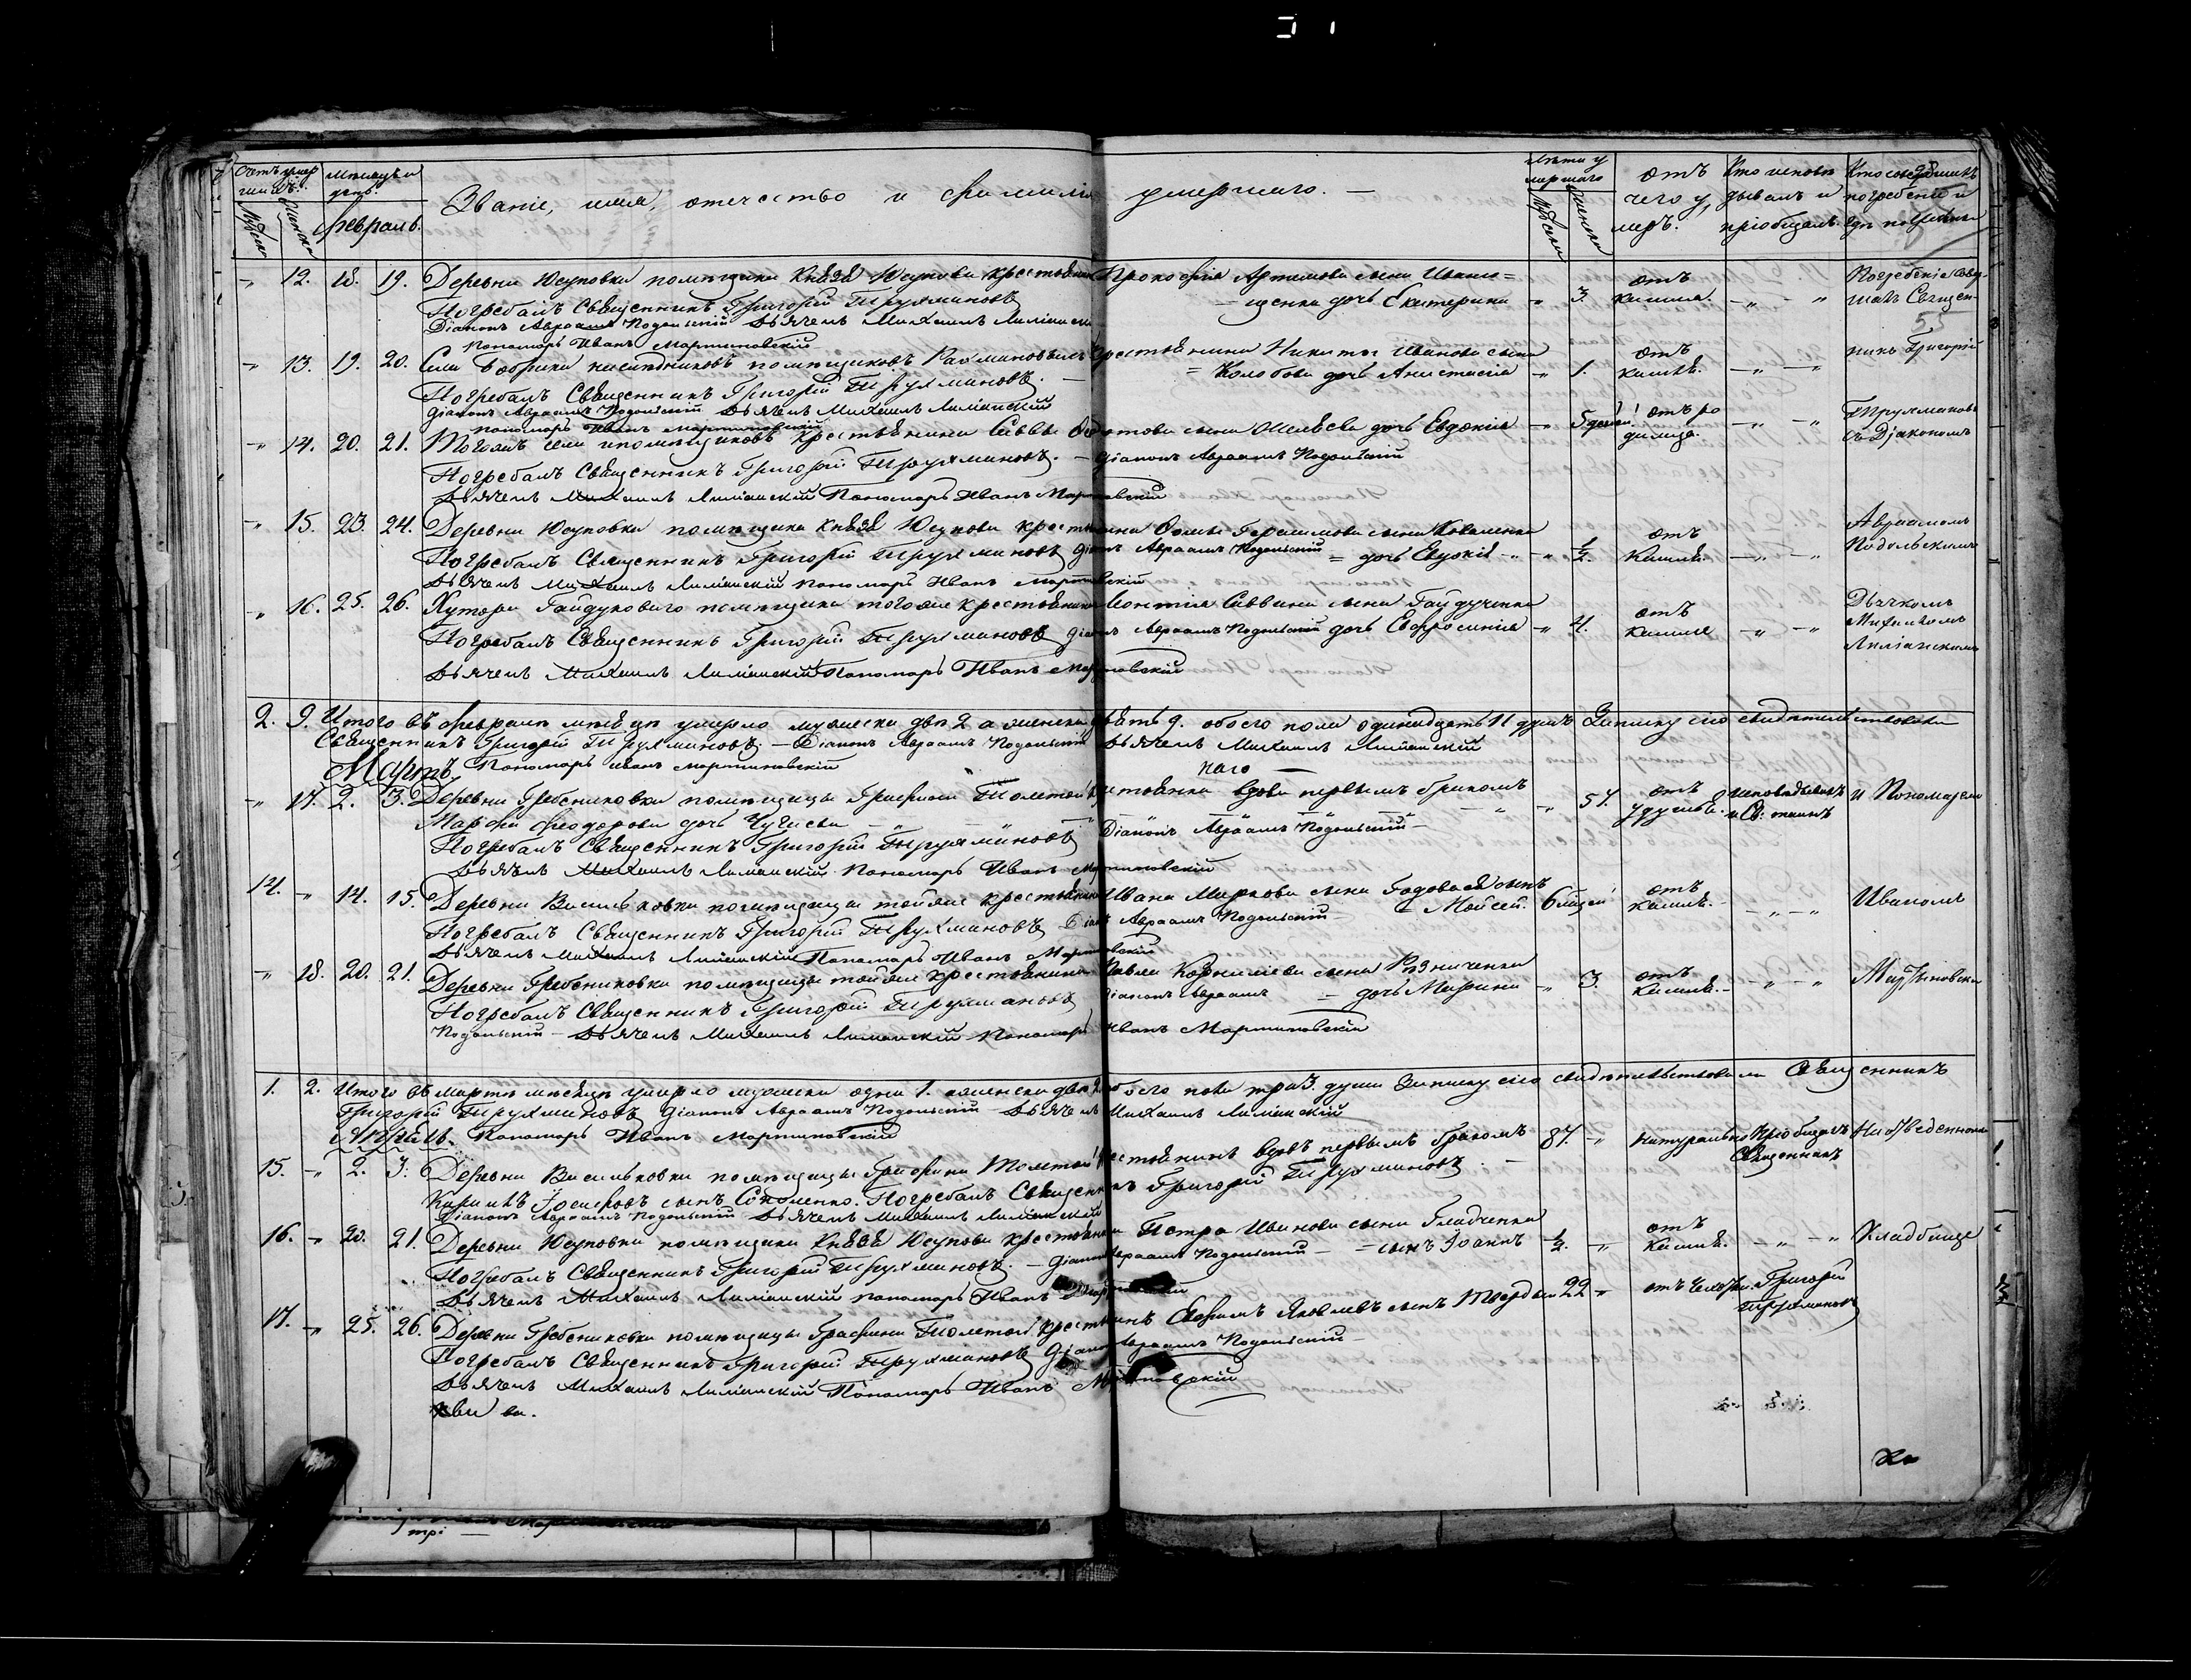 Счетъ умер Мѣсяцъ и
шихъ. день.
Мужеска Женска Февраль. Званіе, имя, отечество и фамилія умершаго. —
Лѣта у мершаго Мужеска Женска
отъ чего у меръ.
Кто исповѣ дывалъ и пріобщалъ.
Кто совершилъ погребеніе и гдѣ погребены
„ 12. 18. 19. Деревни Юсуповки помѣщика Князя Юсупова крестьянина Прокофія Артимова сына Иваню= „ 3. отъ кашля. — „ — „ Погребеніе совер-
Погребалъ Священникъ Григорій Трухмановъ — щенка дочь Екатерина шалъ Священ-
Діаконъ Авраамъ Подольскій Дьячекъ Михаилъ Лиманскій
Пономарь Иванъ Мартиновскій
„ 13. 19. 20. Села Бобрика наслѣдниковъ помѣщиковъ Рахмановыхъ крестьянина Никиты Иванова сына „ 1. отъ кашля. — „ — „ никъ Григорій
Погребалъ Священникъ Григорій Трухмановъ. — = Колобова дочь Анастасія
Діаконъ Авраамъ Подольскій Дьячекъ Михаилъ Лиманскій
Пономарь Иванъ Мартиновскій
„ 14. 20. 21. Тогожъ села помѣщиковъ крестьянина Саввы сына дочь Евдокія „ 5 дней отъ ро димца. — „ — „ Трухмановъ
Погребалъ Священникъ Григорій Трухмановъ. — Діаконъ Авраамъ Подольскій съ Діакономъ
Дьячекъ Михаилъ Лиманскій Пономарь Иванъ Мартиновскій
„ 15. 23. 24. Деревни Юсуповки помѣщика Князя Юсупова крестьянина Герасимова сына Коваленка „ ½. отъ кашля. — „ — „ Авраамомъ
Погребалъ Священникъ Григорій Трухмановъ Діаконъ Авраамъ Подольскій = дочь Евдокія Подольскимъ
Дьячекъ Михаилъ Лиманскій пономарь Иванъ Мартиновскій
„ 16. 25. 26. Хутора Гайдуковаго помѣщика тогоже крестьянина Леонтія Саввина сына Гайдученка „ 4. отъ кашля — „ — „ Дьячкомъ
Погребалъ Священникъ Григорій Трухмановъ Діаконъ Авраамъ Подольскій дочь Евфросинія Михаиломъ
Дьячекъ Михаилъ Лиманскій Пономарь Иванъ Мартиновскій Лиманскимъ
2. 9. Итого въ Февралѣ мѣсяцѣ умерло мужеска два 2 а женска девять 9. обоего пола одинадцать 11 душъ Записку сію свидѣтельствовали
Священникъ Григорій Трухмановъ. — Діаконъ Авраамъ Подольскій Дьячекъ Михаилъ Лиманскій
Мартъ. Пономарь Иванъ Мартиновскій
„ 17. 2. 3. Деревни Гребениковки помѣщицы Графини Толстой крестьянка вдова первымъ бракомъ „ 57. отъ удушья. исповѣдывалъ и Св. таинъ и Пономаремъ
Марфа Феодорова дочь Чугаева
Погребалъ Священникъ Григорій Трухмановъ Діаконъ Авраамъ Подольскій —
Дьячекъ Михаилъ Лиманскій Пономарь Иванъ Мартиновскій
14. „ 14. 15. Деревни Васильковки помѣщицы тойже крестьянина Ивана Маркова сына сынъ 6 мѣсец. отъ кашля. — „ — „ Иваномъ
Погребалъ Священникъ Григорій Трухмановъ Діаконъ Авраамъ Подольскій — = Мойсей.
Дьячекъ Михаилъ Лиманскій Пономарь Иванъ Мартиновскій
„ 18. 20. 21. Деревни Гребениковки помѣщицы тойже крестьянина Павла Корнилиева сына Рѣзниченка „ 3. отъ кашля. — „ — „ Мартиновски
Погребалъ Священникъ Григорій Трухмановъ Діаконъ Авраамъ = дочь Марина
Подольскій — Дьячекъ Михаилъ Лиманскій Пономарь Иванъ Мартиновскій
1. 2. Итого въ мартѣ мѣсяцѣ умерло мужеска одна 1. а женска двѣ 2. обоего пола три 3. души Записку сію свидѣтельствовали Священникъ
Григорій Трухмановъ Діаконъ Авраамъ Подольскій — Дьячекъ Михаилъ Лиманскій
Апрѣль. Пономарь Иванъ Мартиновскій
15. „ 2. 3. Деревни Васильковки помѣщицы Графини Толстой крестьянинъ вдовъ первымъ бракомъ 87. „ натурально пріобщалъ Священникъ На отведенномъ
Іосифовъ сынъ Соколенко. Погребалъ Священникъ Григорій Трухмановъ. —
Діаконъ Авраамъ Подольскій Дьячекъ Михаилъ Лиманскій
16. „ 20. 21. Деревни Юсуповки помѣщика Князя Юсупова крестьянина Петра Иванова сына Гладченка ½. „ отъ кашля. — „ — „ Кладбище
Погребалъ Священникъ Григорій Трухмановъ. — Діаконъ Авраамъ Подольскій — = сынъ Іоаннъ
Дьячекъ Михаилъ Лиманскій пономарь Иванъ Мартиновскій
17. „ 25. 26. Деревни Гребениковки помѣщицы Графини Толстой крестьянинъ Ефимъ Яковлевъ сынъ 22 „ отъ Григорій Трухмановъ
Погребалъ Священникъ Григорій Трухмановъ Діаконъ Авраамъ Подольскій —
Дьячекъ Михаилъ Лиманскій Пономарь Иванъ Мартиновскій